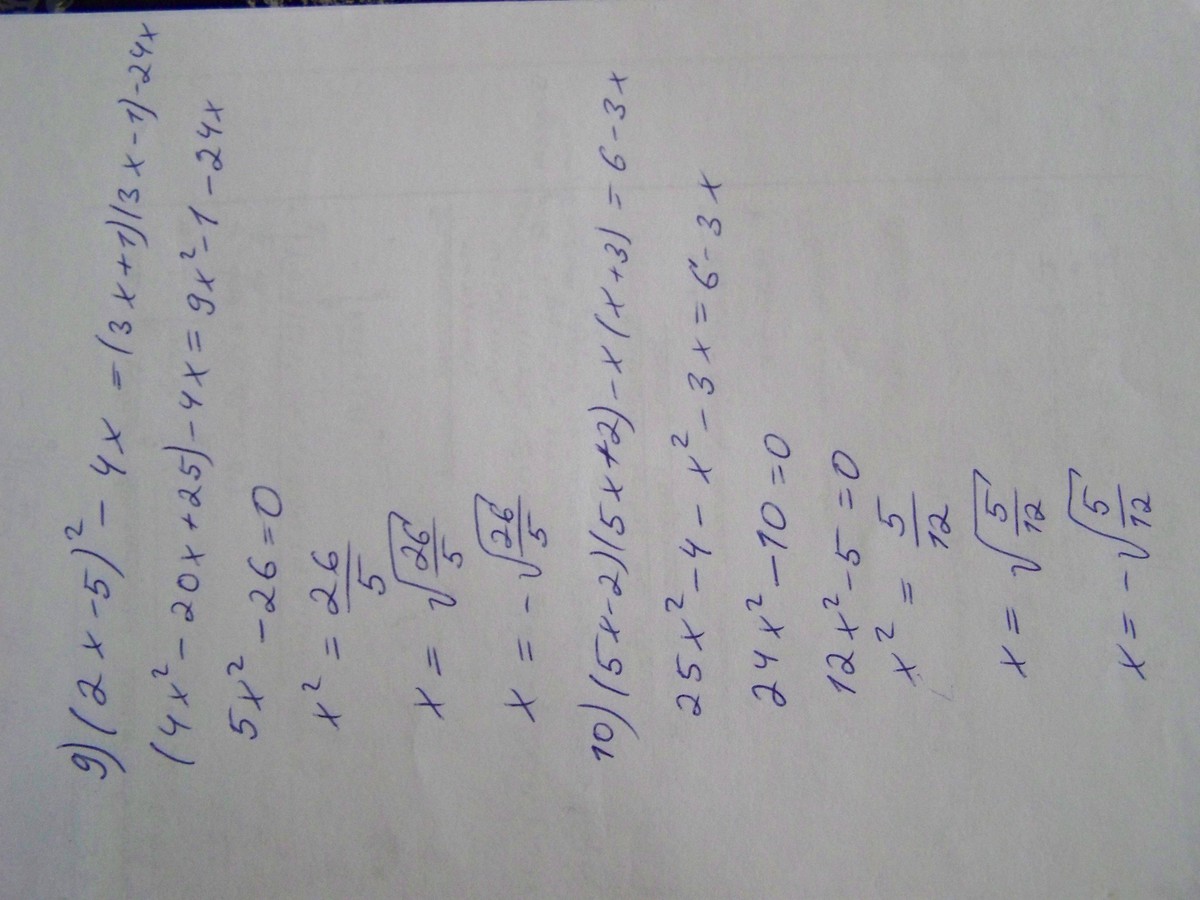 9) (2x-5)² - 4x = (3x+1)(3x-1)-24x
(4x² - 20x+25) - 4x = 9x² - 1 - 24x
5x² - 26 = 0
x² = 26/5
x = √(26/5)
x = - √(26/5)
10) (5x-2)(5x+2) - x(x+3) = 6-3x
25x² - 4 - x² - 3x = 6 - 3x
24x² - 10 = 0
12x² - 5 = 0
x² = 5/12
x = √(5/12)
x = - √(5/12)